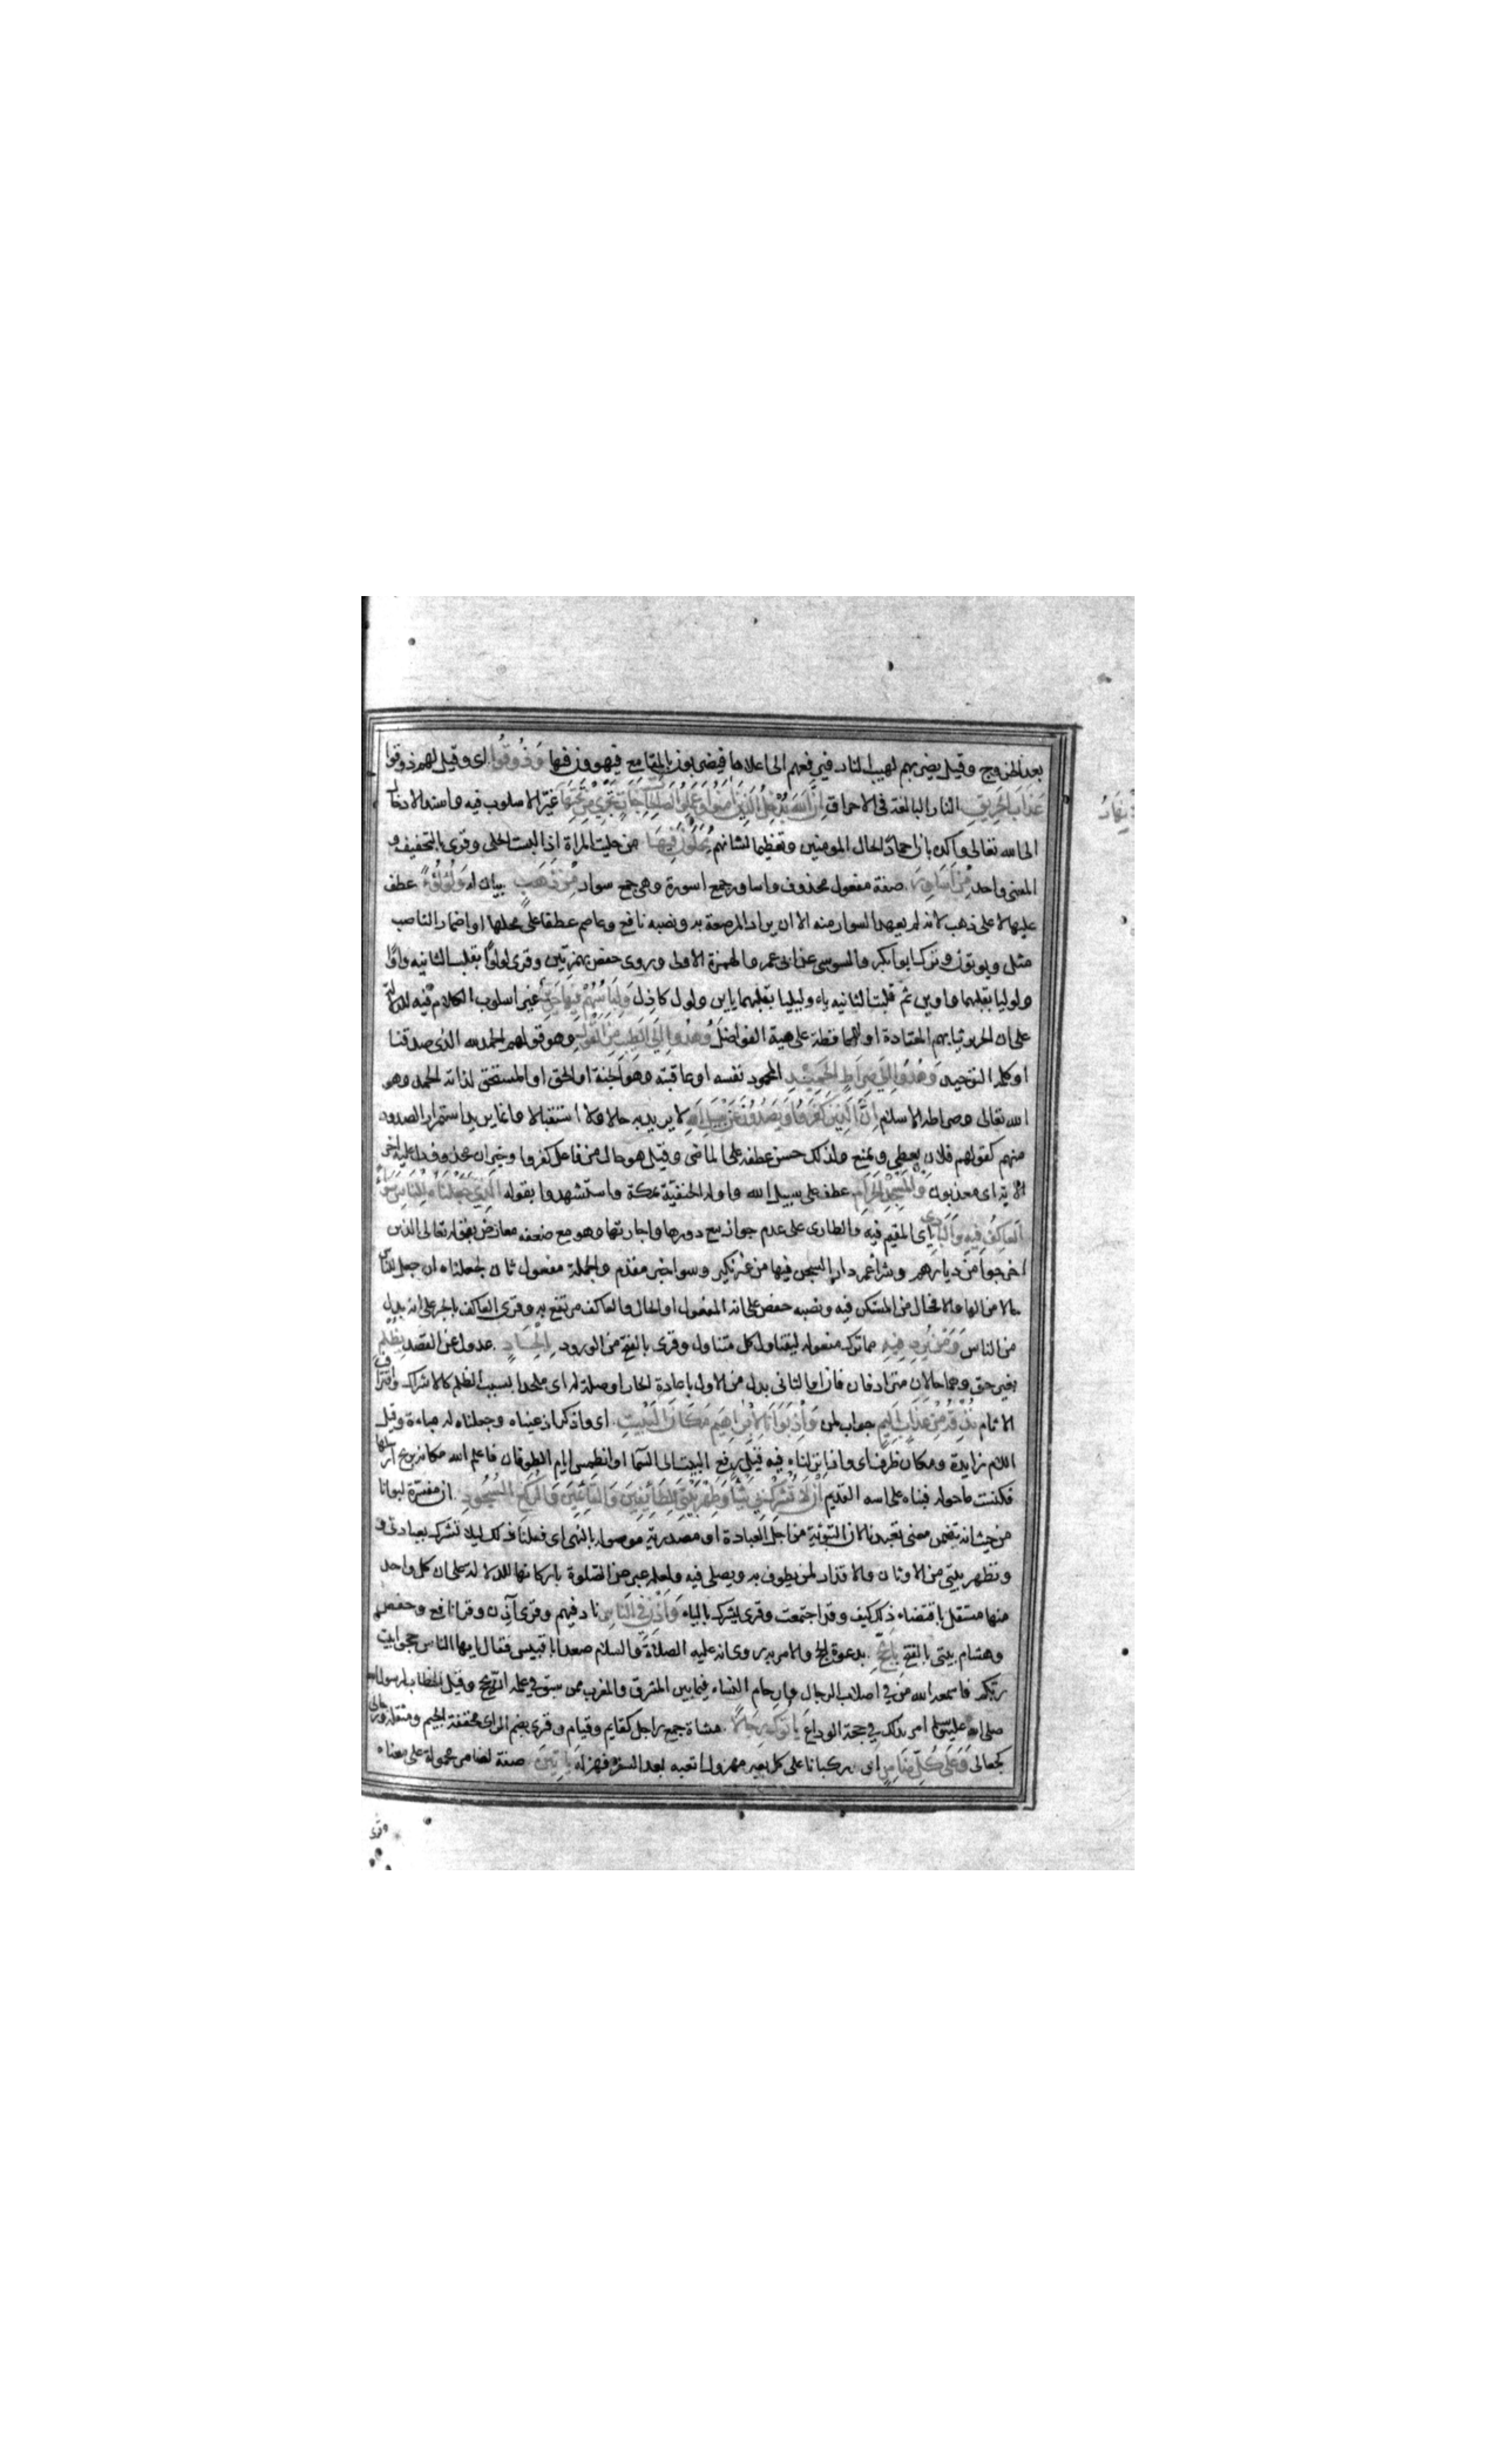 بعد الخروج وقيل يضربهم لهيب النار فيرفعهم الى اعلاها فيضربون بالمقامع فيهوون فيها وَذُوقُوا اى وقيل لهم ذوقوا
عَذَابَ الْحَرِيقِ النار البالغة فى الاحراق اِنَّ اللهَ يُدْخِلُ الَّذِينَ اٰمَنُوا وَعَمِلُوا الصَّالِحَاتِ جَنَّاتٍ تَجْرِي مِنْ تَحْتِهَا غيّر الاسلوب فيه واسند الادخال
الى الله تعالى واكده بان احمادًا لحال المومنين وتعظيما لشانهم يُحَلَّوْنَ فِيهَا من حليت المراة اذا البست الحلى وقرى بالتخفيف و
المعنى واحد مِنْ اَسَاوِرَ صفة مفعول محذوف واساور جمع اسورة وهى جمع سوار مِنْ ذَهَبٍ بيان له وَلُؤْلُؤًا عطف
عليها لا على ذهب لانه لم يعهد السوار منه الا ان يراد المرصعة به ونصبه نافع وعاصم عطفا على محلها او اضمار الناصب
مثل ويوتون وترك ابو بكر والسوسى عن ابى عمرو الهمزة الاولى وروى حفص بهمزتين وقرى لولوًا بقلب الثانيه واوًا
ولوليا بقلبهما واوين ثم قلبت الثانيه ياء وليليا بقلبهما يائين ولول كادل وَلِبَاسُهُمْ فِيهَا حَرِيرٌ غير اسلوب الكلام فيه للدلالة
على ان الحرير ثيابهم المعتادة او للمحافظة على هيئة الفواصل وَهُدُوا اِلَى الطَّيِّبِ مِنَ الْقَوْلِ وهو قولهم الحمد لله الذى صدقنا
او كلمة التوحيد وَهُدُوا اِلَى صِرَاطِ الْحَمِيدِ المحمود نفسه او عاقبته وهو الجنة او الحق او المستحق لذاته الحمد وهو
الله تعالى وصراطه الاسلام اِنَّ الَّذِينَ كَفَرُوا وَيَصُدُّونَ عَنْ سَبِيلِ اللهِ لا يريد به حالا ولا استقبالا وانما يريد استمرار الصدود
منهم كقولهم فلان يعطى ويمنع ولذلك حسن عطفه على الماضى وقيل هو حال من فاعل كفروا وخبر ان محذوف دل عليه اخر
الاية اى معذبون وَالْمَسْجِدِ الْحَرَامِ عطف على سبيل الله واوله الحنفيّة بمكة واستشهدوا بقوله الَّذِي جَعَلْنَاهُ لِلنَّاسِ سَوَاءً
الْعَاكِفُ فِيهِ وَالْبَادِى اى المقيم فيه والطارى على عدم جواز بيع دورها واجارتها وهو مع ضعفه معارض بقوله تعالى الذين
اخرجوا من ديارهم وشراء عمر دار السجن فيها من غير نكير وسوا خبر مقدم والجملة مفعول ثان لجعلناه ان جعل للناس
حالا من الها والا فحال من المستكن فيه ونصبه حفص على انه المفعول او الحال والعاكف مرتفع به وقرى العاكف بالجر على انه بدل
من الناس وَمَنْ يُرِدْ فِيهِ مما ترك مفعوله ليتناول كل متناول وقرى بالفتح من الورود بِاِلْحَادٍ عدول عن القصد بِظُلْمٍ
بغير حق وهما حالان مترادفان او الثانى بدل من الاول باعادة الجار او صلة له اى ملحدا بسبب الظلم كالاشراك واقتراف
الاثام نُذِقْهُ مِنْ عَذَابٍ اَلِيمٍ جواب لمن وَاِذْ بَوَّأْنَا لِاِبْرَاهِيمَ مَكَانَ الْبَيْتِ اى واذكر اذ عيناه وجعلناه له مباءة وقيل
اللام زايدة ومكان ظرف اى واذ انزلناه فيه قيل رفع البيت الى السما او انطمس ايام الطوفان فاعلم الله مكانه بريح ارسلها
فكنست ما حوله فبناه على اسه القديم اَنْ لَا تُشْرِكْ بِي شَيْئًا وَطَهِّرْ بَيْتِيَ لِلطَّائِفِينَ وَالْقَائِمِينَ وَالرُّكَّعِ السُّجُودِ ان مفسّرة لبوانا
من حيث انه تضمن معنى تعبدنا لان التبوئة من اجل العبادة او مصدرية موصولة بالنهى اى فعلنا ذلك ليلا تشرك بعبادتى و
وتطهر بيتى من الاوثان والاقذار لمن يطوف به ويصلى فيه ولعله عبر عن الصّلوة باركانها للدلالة على ان كل واحد
منها مستقل باقتضاء ذلك كيف وقد اجتمعت وقرى يشرك بالياء وَاَذِّنْ فِي النَّاسِ ناد فيهم وقرى آذن وقرا نافع وحفص
وهشام بيتى بالفتح بِالْحَجِّ بدعوة الحج والامر به روى انه عليه الصلاة والسلام صعد ابا قبيس فقال يا ايها الناس حجوا بيت
ربكم فاسمعه الله من فى اصلاب الرجال وارحام النساء فيما بين المشرق والمغرب ممن سبق فى علمه ان يحج وقيل الخطاب لرسول الله
صلى الله عليه وسلم امر بذلك فى حجة الوداع يَاْتُوكَ رِجَالًا مشاة جمع راجل كقايم وقيام وقرى بضم الراى مخففة الجيم ومثقلة ورجالى
كعجالى وَعَلَى كُلِّ ضَامِرٍ اى ركبانا على كل بعير مهزول اتعبه بعد السفر فهزله يَاْتِينَ صفة لضامر محمولة على معناه